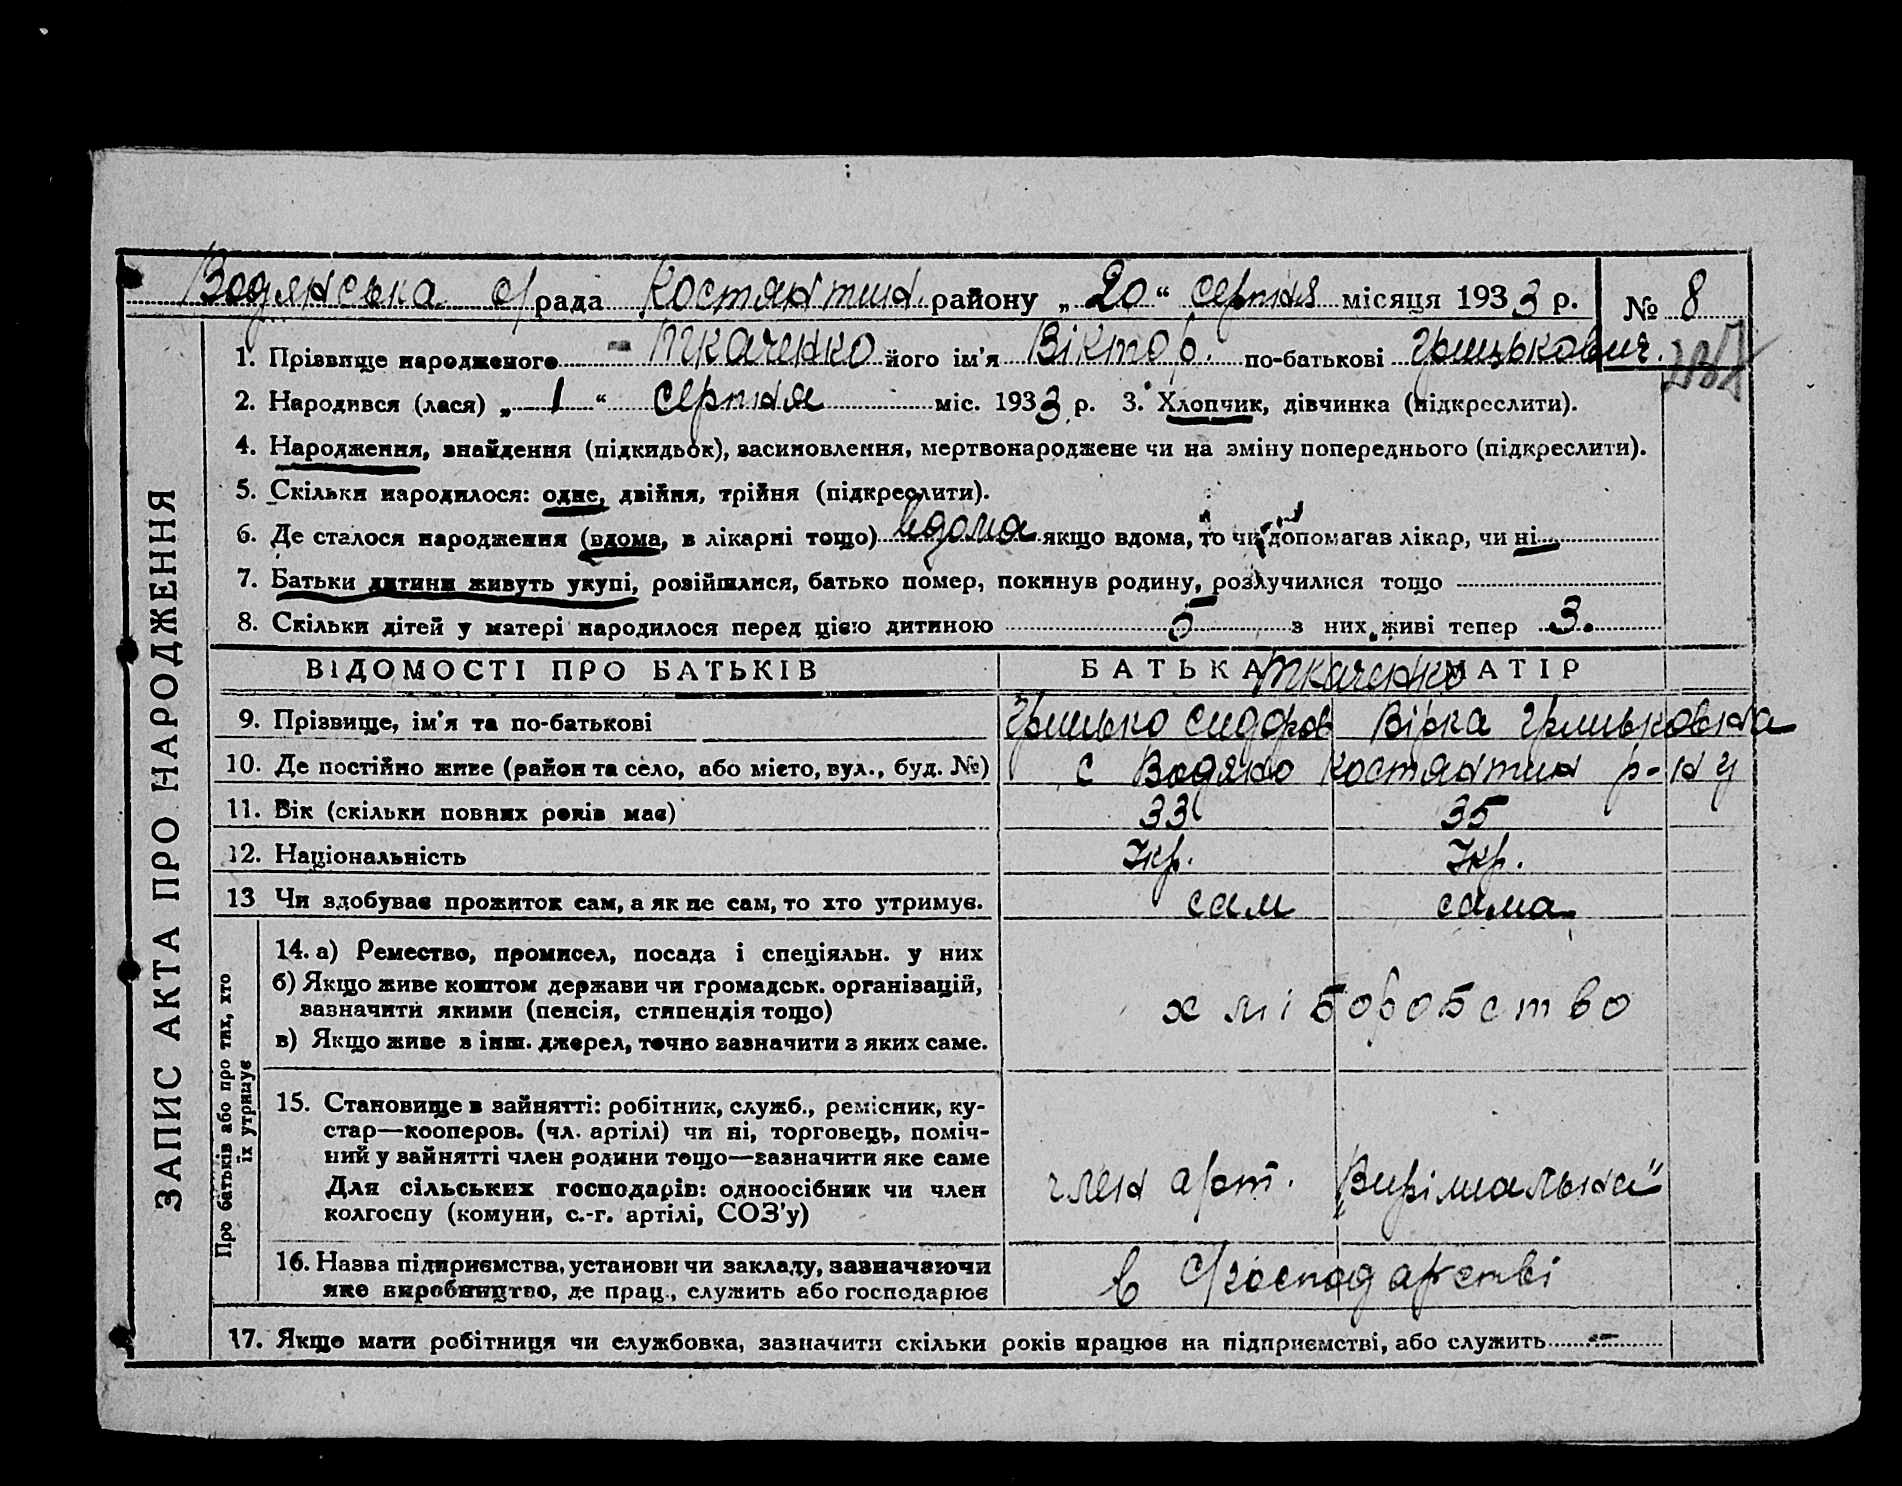 Водянська с/рада Костянтин. району „20“ серпня місяця 1933 р. № 8
1. Прізвище народженого Ткаченко його ім'я Віктор. по-батькові Грицькович.
2. Народився (лася) „1“ серпня міс. 1933 р. 3. Хлопчик, дівчинка (підкреслити).
4. Народження, знайдення (підкидьок), засиновлення, мертвонароджене чи на зміну попереднього (підкреслити).
5. Скільки народилося: одне, двійня, трійня (підкреслити).
6. Де сталося народження (вдома, в лікарні тощо) вдома якщо вдома, то чи допомагав лікар, чи ні
7. Батьки дитини живуть укупі, розійшлися, батько помер, покинув родину, розлучилися тощо
8. Скільки дітей у матері народилося перед цією дитиною 5 з них живі тепер 3.
ВІДОМОСТІ ПРО БАТЬКІВ БАТЬКА Ткаченко МАТІР
9. Прізвище, ім'я та по-батькові Грицько Сидоров Вірка Грицьковна
10. Де постійно живе (район та село, або місто, вул., буд. №) с Водяно Костянтин р-ну
11. Вік (скільки повних років має) 33 35
12. Національність Укр. Укр.
13 Чи здобуває прожиток сам, а як не сам, то хто утримує. сам сама
14. а) Ремество, промисел, посада і спеціяльн. у них
б) Якщо живе коштом держави чи громадськ. організацій,
зазначити якими (пенсія, стипендія тощо)
в) Якщо живе в інш. джерел, точно зазначити з яких саме.
хліборобство
15. Становище в зайнятті: робітник, служб., ремісник, ку-
стар—кооперов. (чл. артілі) чи ні, торговець, поміч-
ний у зайнятті член родини тощо—зазначити яке саме
Для сільських господарів: одноосібник чи член
колгоспу (комуни, с.-г. артілі, СОЗ'у)
член арт. „Вирішальная"
16. Назва підприємства, установи чи закладу, зазначаючи
яке виробництво, де прац., служить або господарює
в с/господарстві
17. Якщо мати робітниця чи службовка, зазначити скільки років працює на підприємстві, або служить –
ЗАПИС АКТА ПРО НАРОДЖЕННЯ
Про батьків або про тих, хто
їх утримує